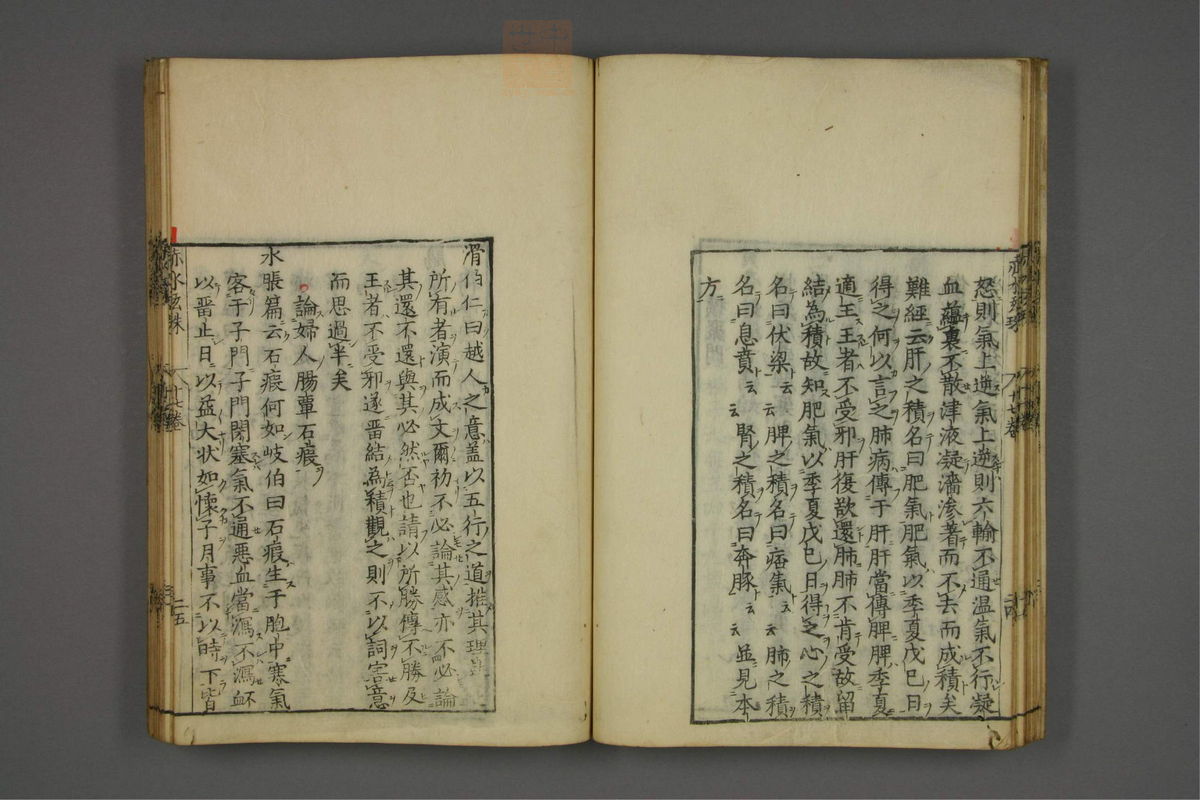 怒則氣上逆氣上逆則六輸不通溫氣不行凝
血蘊裏不散津液凝濇滲著而不去而成積矣
難經云肝之積名曰肥氣肥氣以季夏戊巳日
得之何以言之肺病傳于肝肝當傳脾脾季夏
適王王者不受邪肝復欲還肺肺不肯受故留
結為積故知肥氣以季夏戊巳日得之心之積
名曰伏梁云云脾之積名曰痞氣云云肺之積
名曰息賁云云腎之積名曰奔豚云云並見本
方
滑伯仁曰越人之意蓋以五行之道推其理
所有者演而成文爾初不必論其感亦不必論
其還不還與其必然否也請以所勝傳不勝及
王者不受邪遂畱結為積觀之則不以詞害意
而思過半矣
論婦人腸覃石瘕
水脹篇云石瘕何如岐伯曰石瘕生于胞中寒氣
客于子門子門閉塞氣不通惡血當瀉不瀉衃
以畱止日以益大狀如懷子月事不以時下皆
赤水玄珠
十七卷
二五